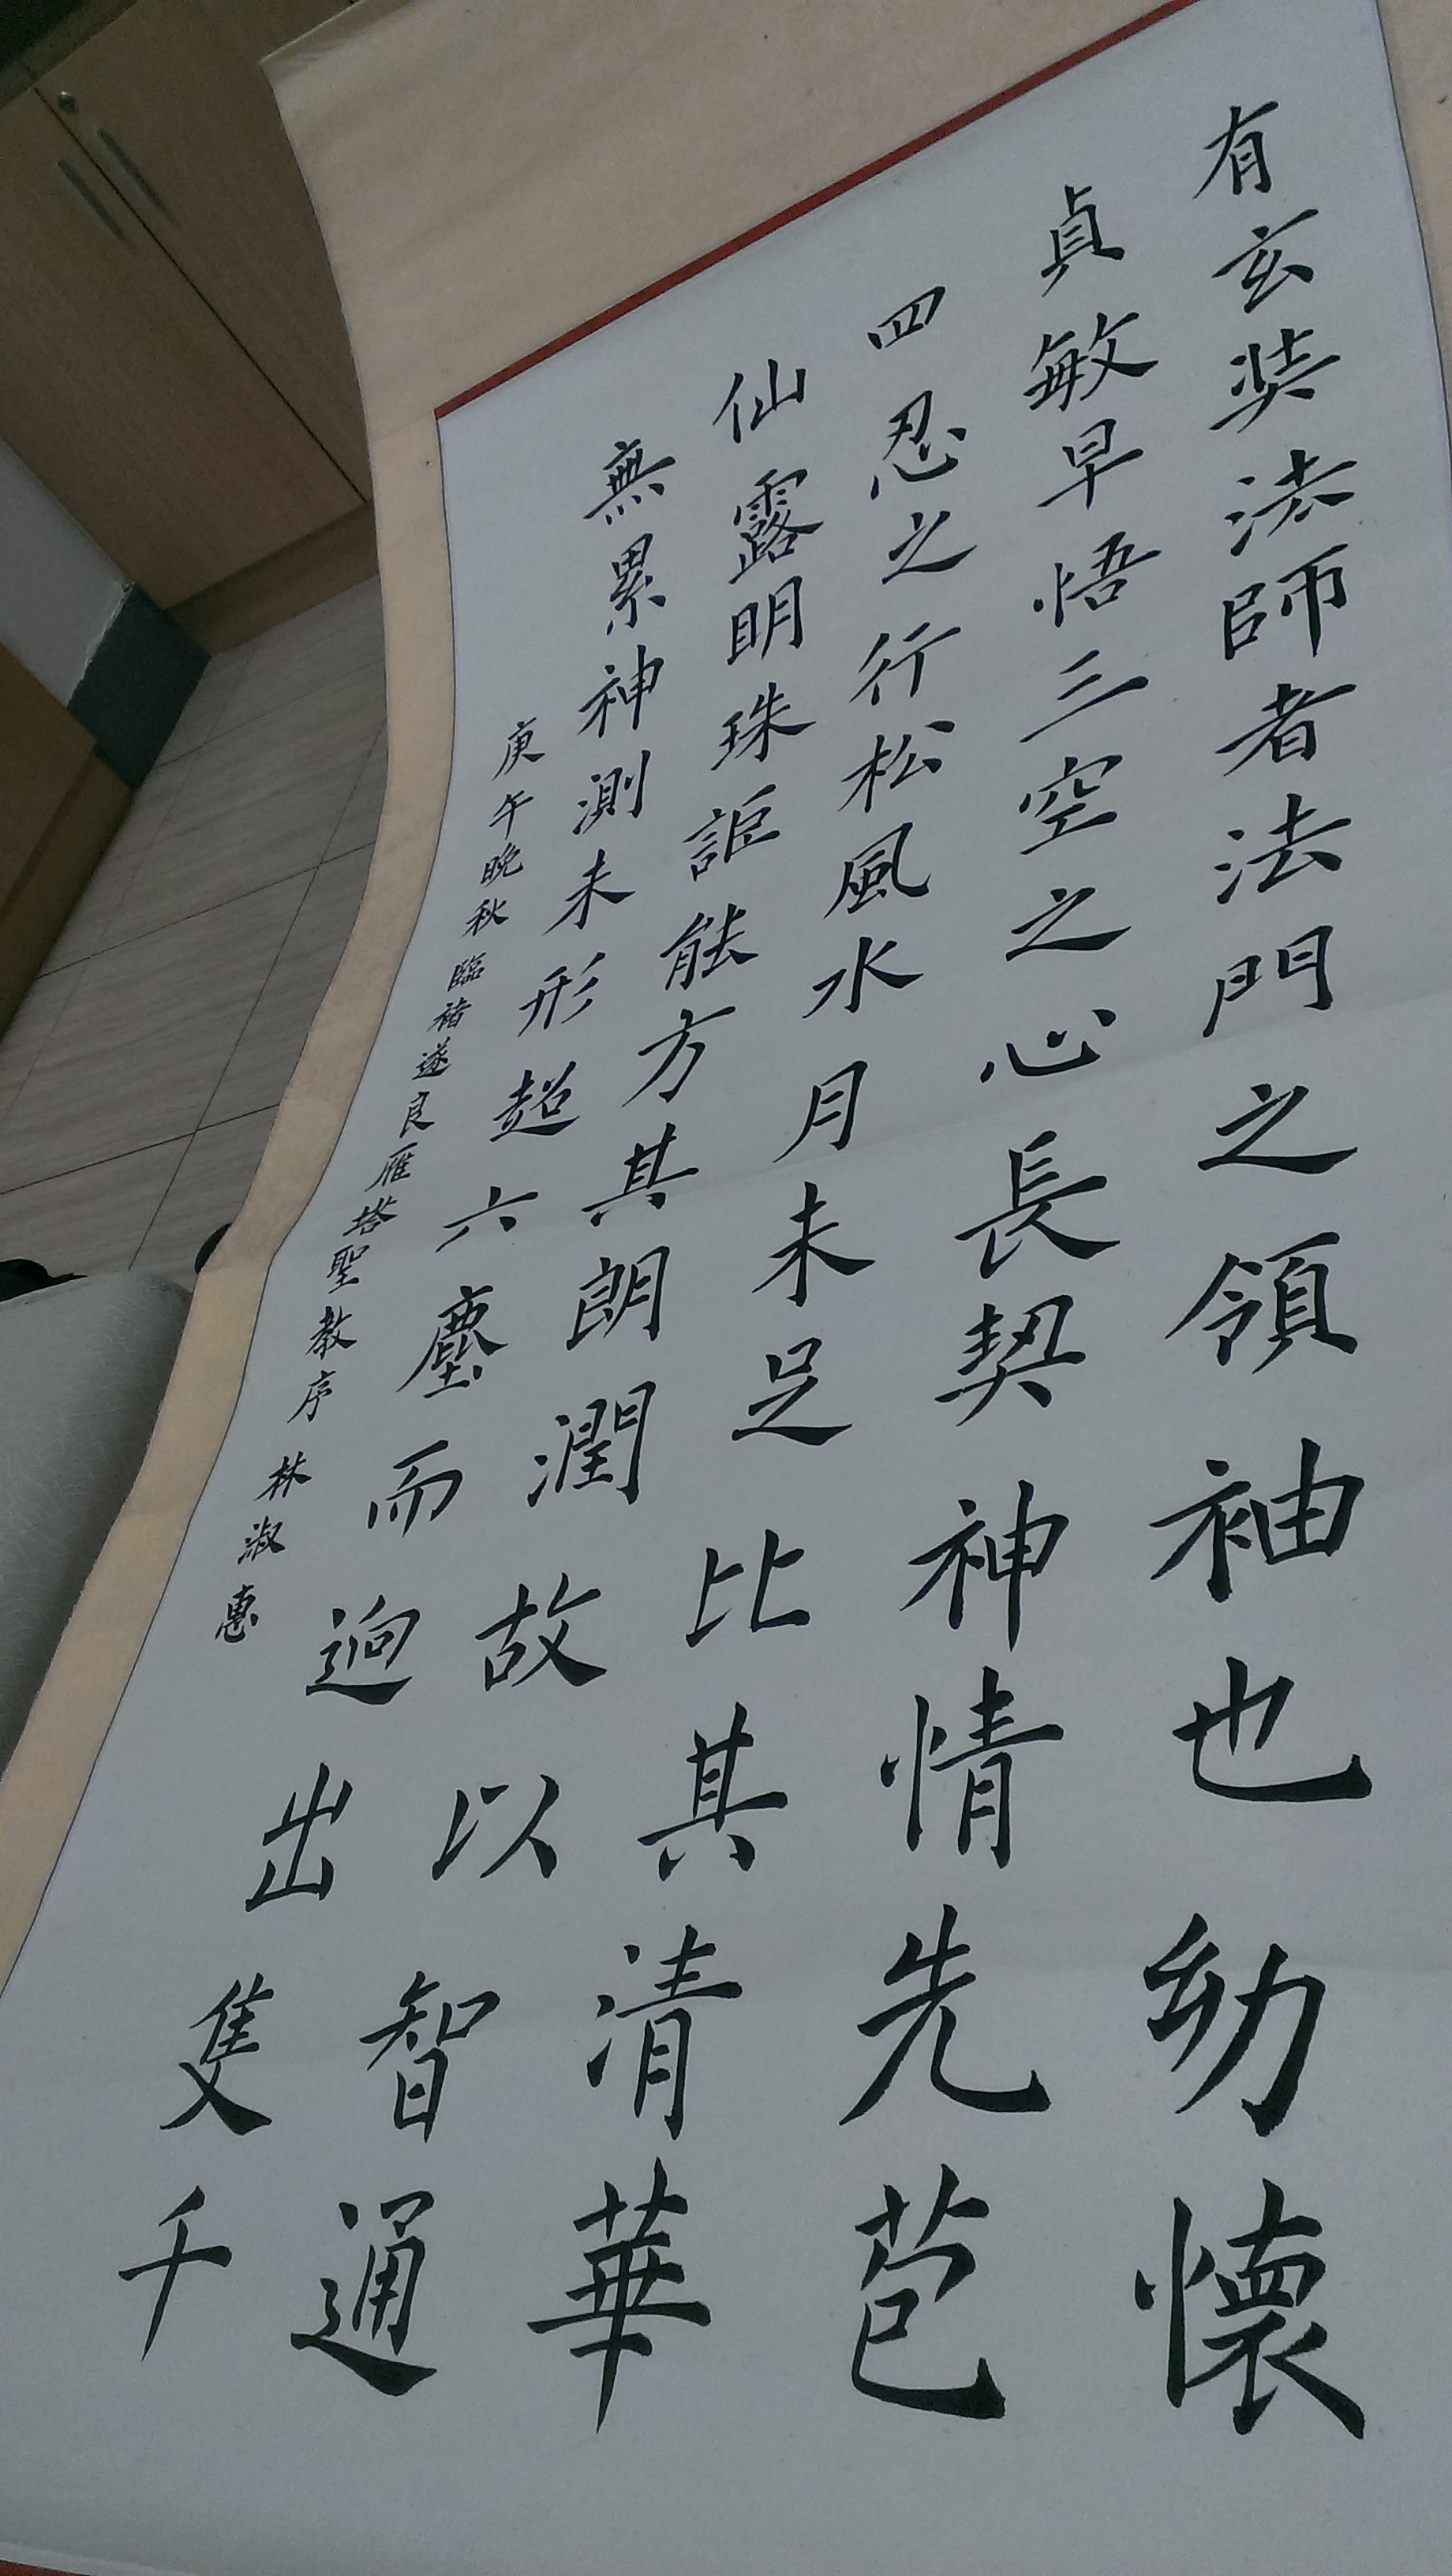 有玄奘法師者法門之領袖也幼懷
貞敏早悟三空之心長契神情先苞
四忍之行松風水月未足比其清華
仙露明珠詎能方其朗潤故以智通
無累神測未形超六塵而迥出隻千
庚午晚秋臨褚遂良雁塔聖教序林淑惠